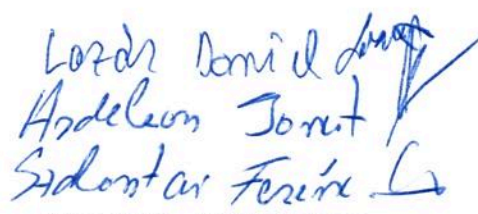 Lazár Daniel
Ardelean Ionut
Szalontai Ferenc